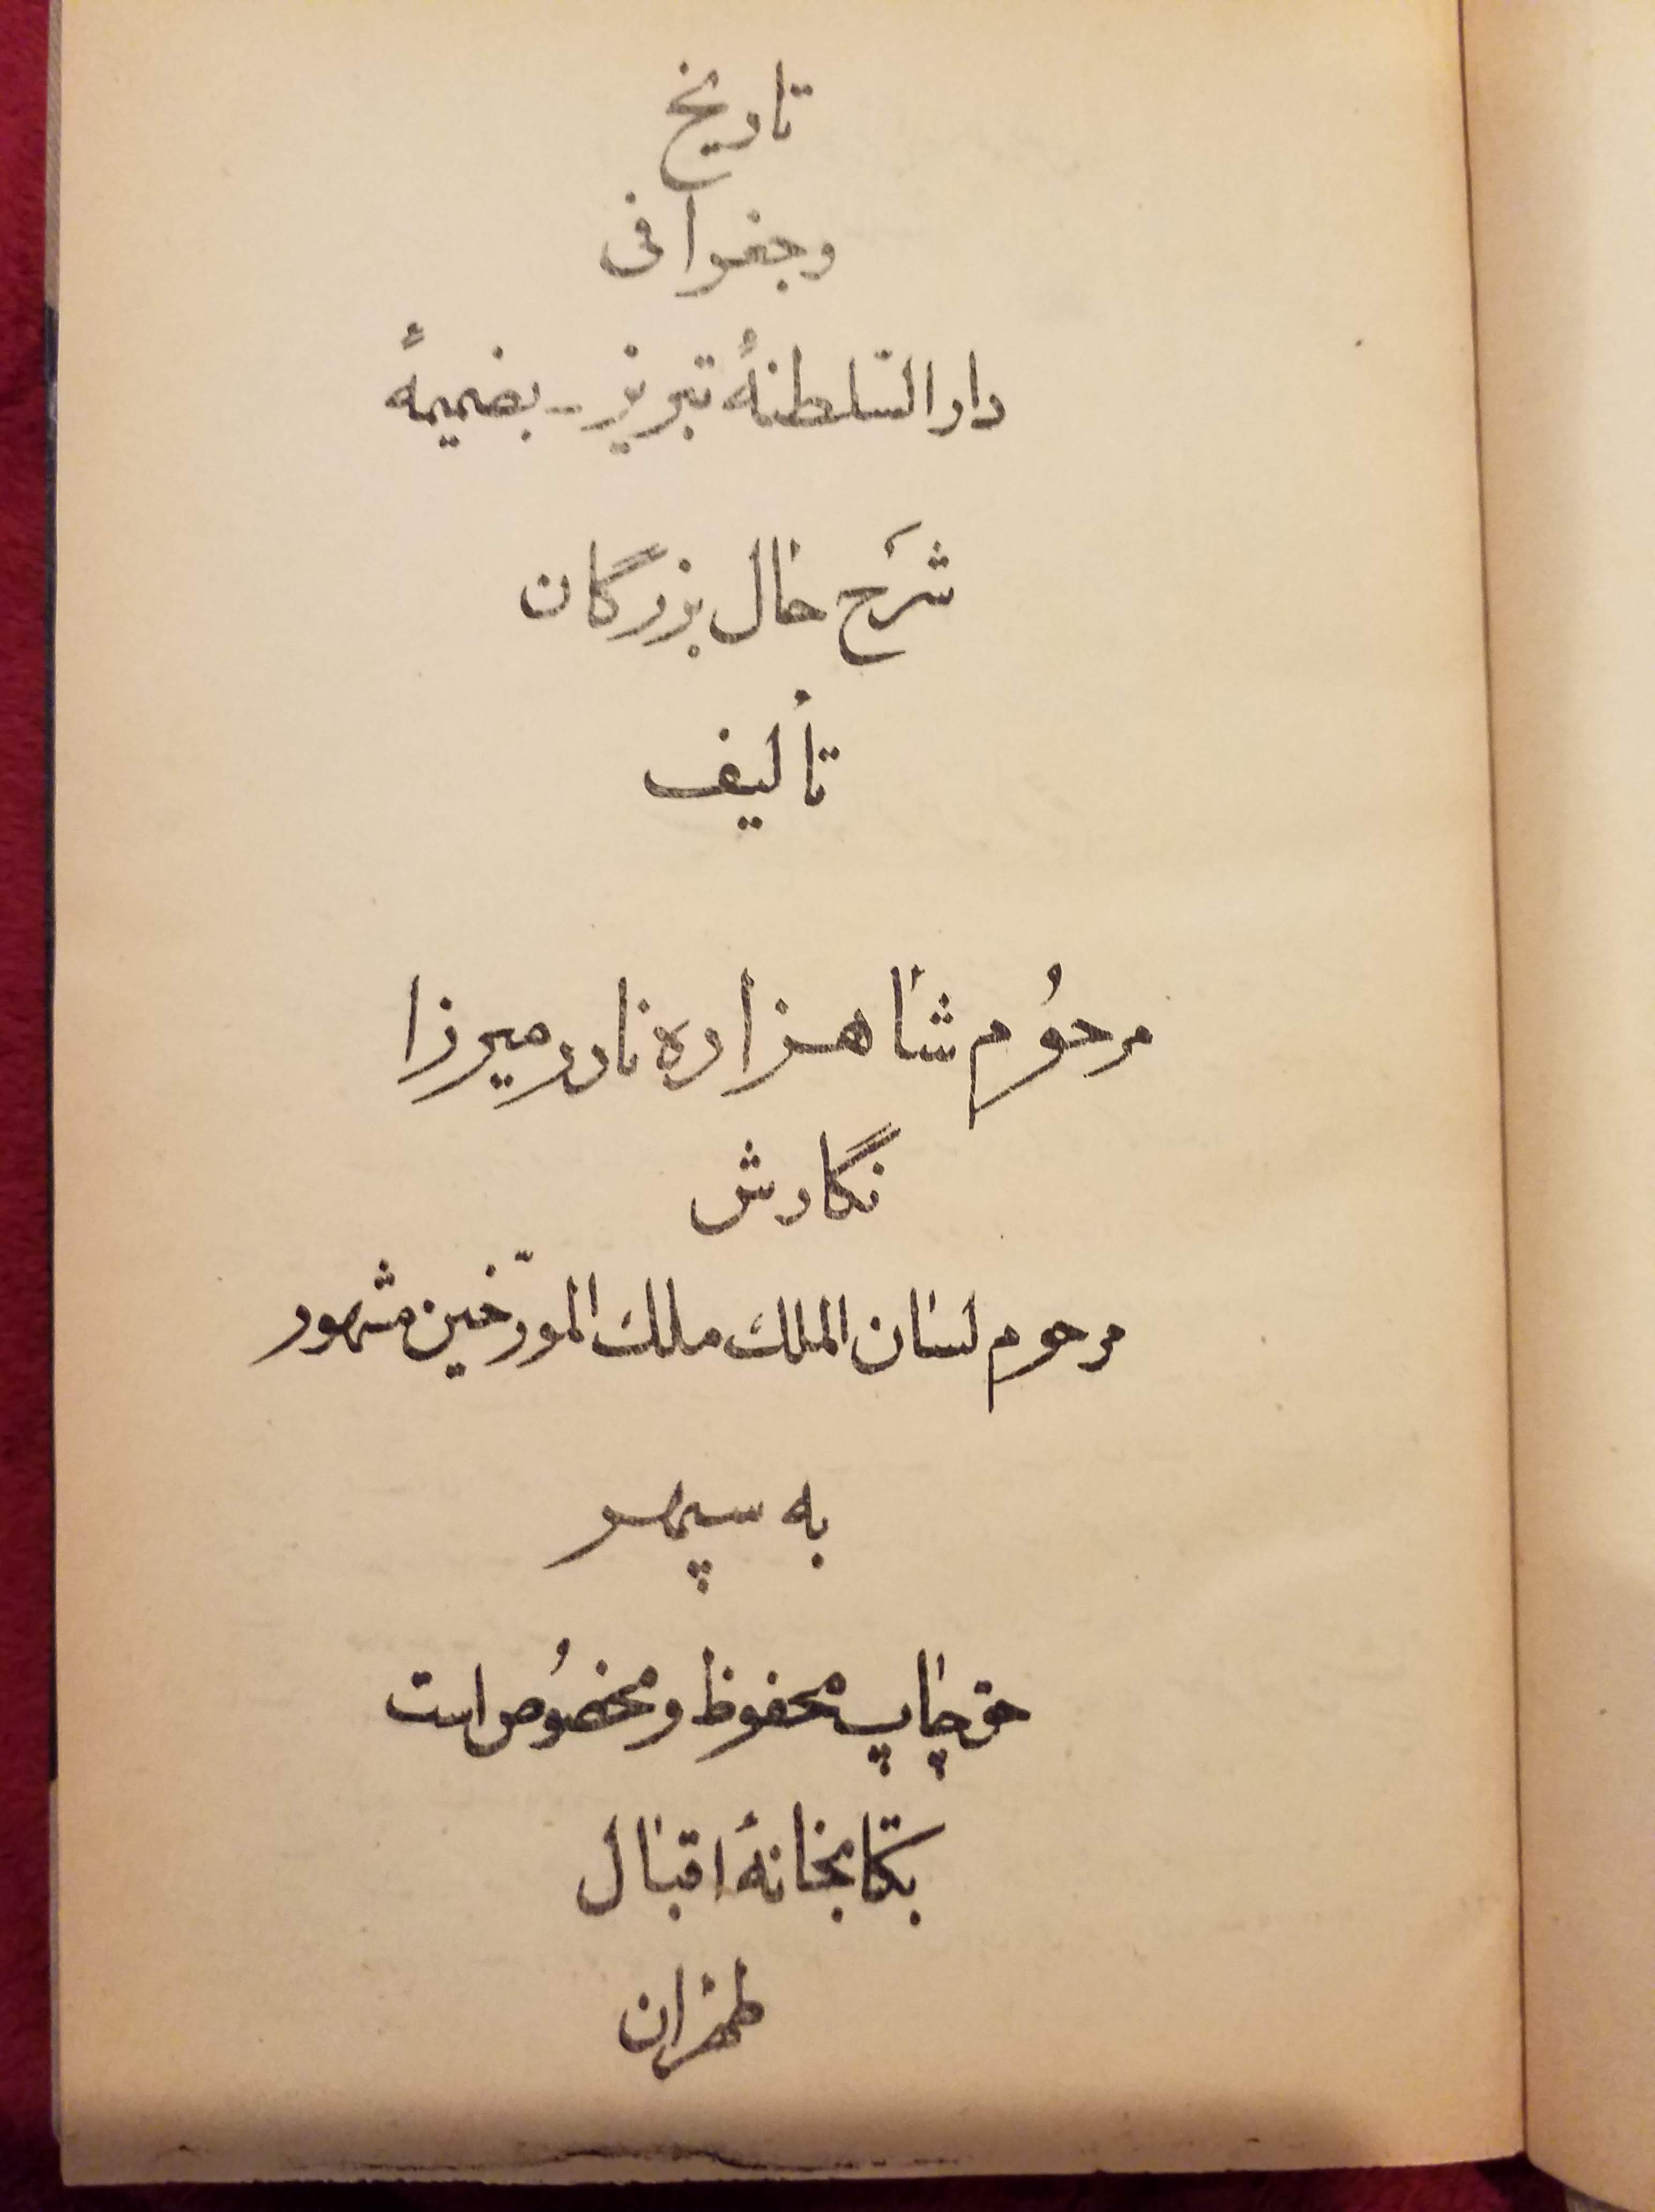 تاریخ
وجغرافی
دارالسّلطنهٔ تبریز ـ بضمیمهٔ
شرَح حال بزرگان
تألیف
مرحوُم شاهزاده نادرمیرزا
نگارش
مرحوم لسان الملك ملك المورّخین مشهور
به سپهر
حق چاپ محفوظ و مخصوُص است
بکتابخانهٔ اقبال
طهران